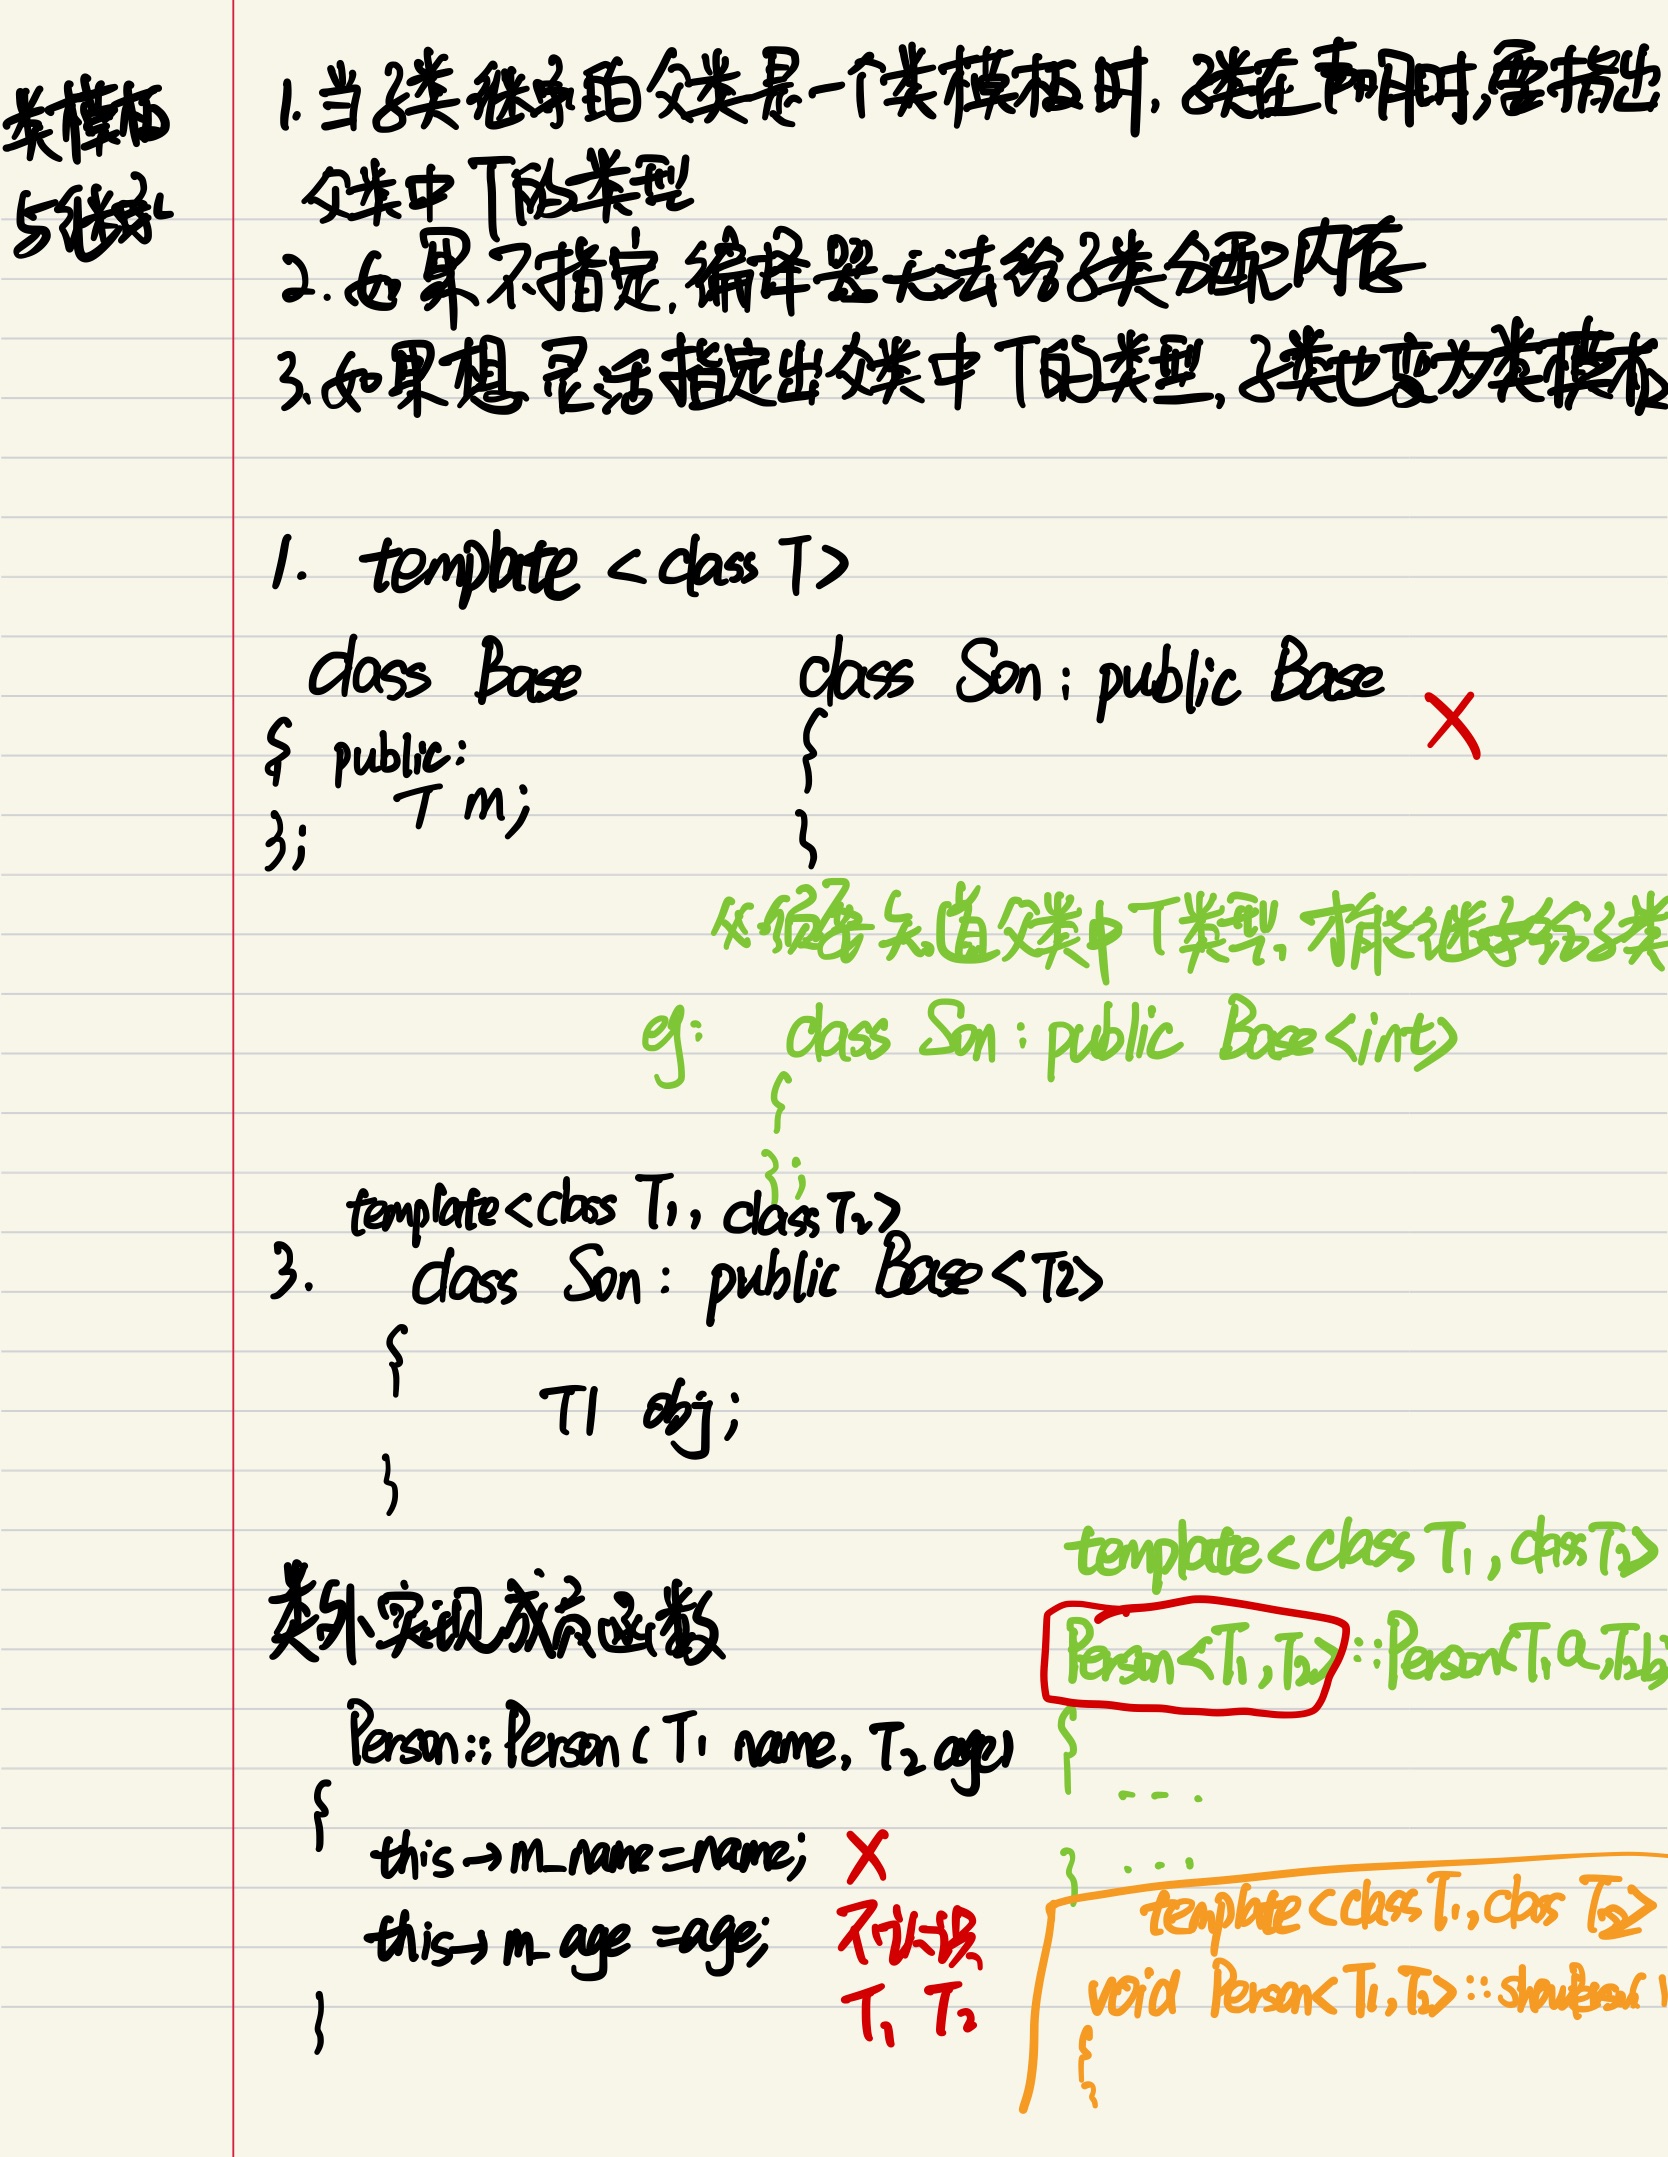 类模板
与继承
1.当子类继承的父类是一个类模板时,子类在声明时,要指出
父类中T的类型
2.如果不指定,编译器无法给子类分配内存
3.如果想灵活指定出父类中T的类型,子类也变为类模板
1. template <class T>
class Base class Son: public Base ×
{ public: {
T m;
}; }
必须要知道父类中T类型,才能继承给子类
eg: class Son: public Base<int>
{
};
template<class T1, class T2>
3. class Son: public Base<T2>
{
T1 obj;
}
类外实现成员函数
Person::Person(T1 name, T2 age)
{
this→m_name=name; ×
this→m_age=age; 不认识
T1 T2
}
template<class T1, class T2>
Person<T1,T2>::Person(T1 a,T2 b)
{
....
} ...
template<class T1, class T2>
void Person<T1,T2>::showPerson()
{
}